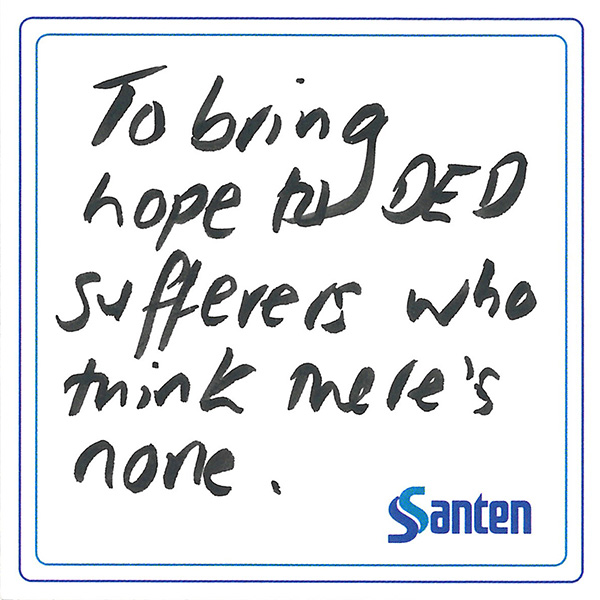 To bring
hope to DED
sufferers who
think there's
none.
Santen